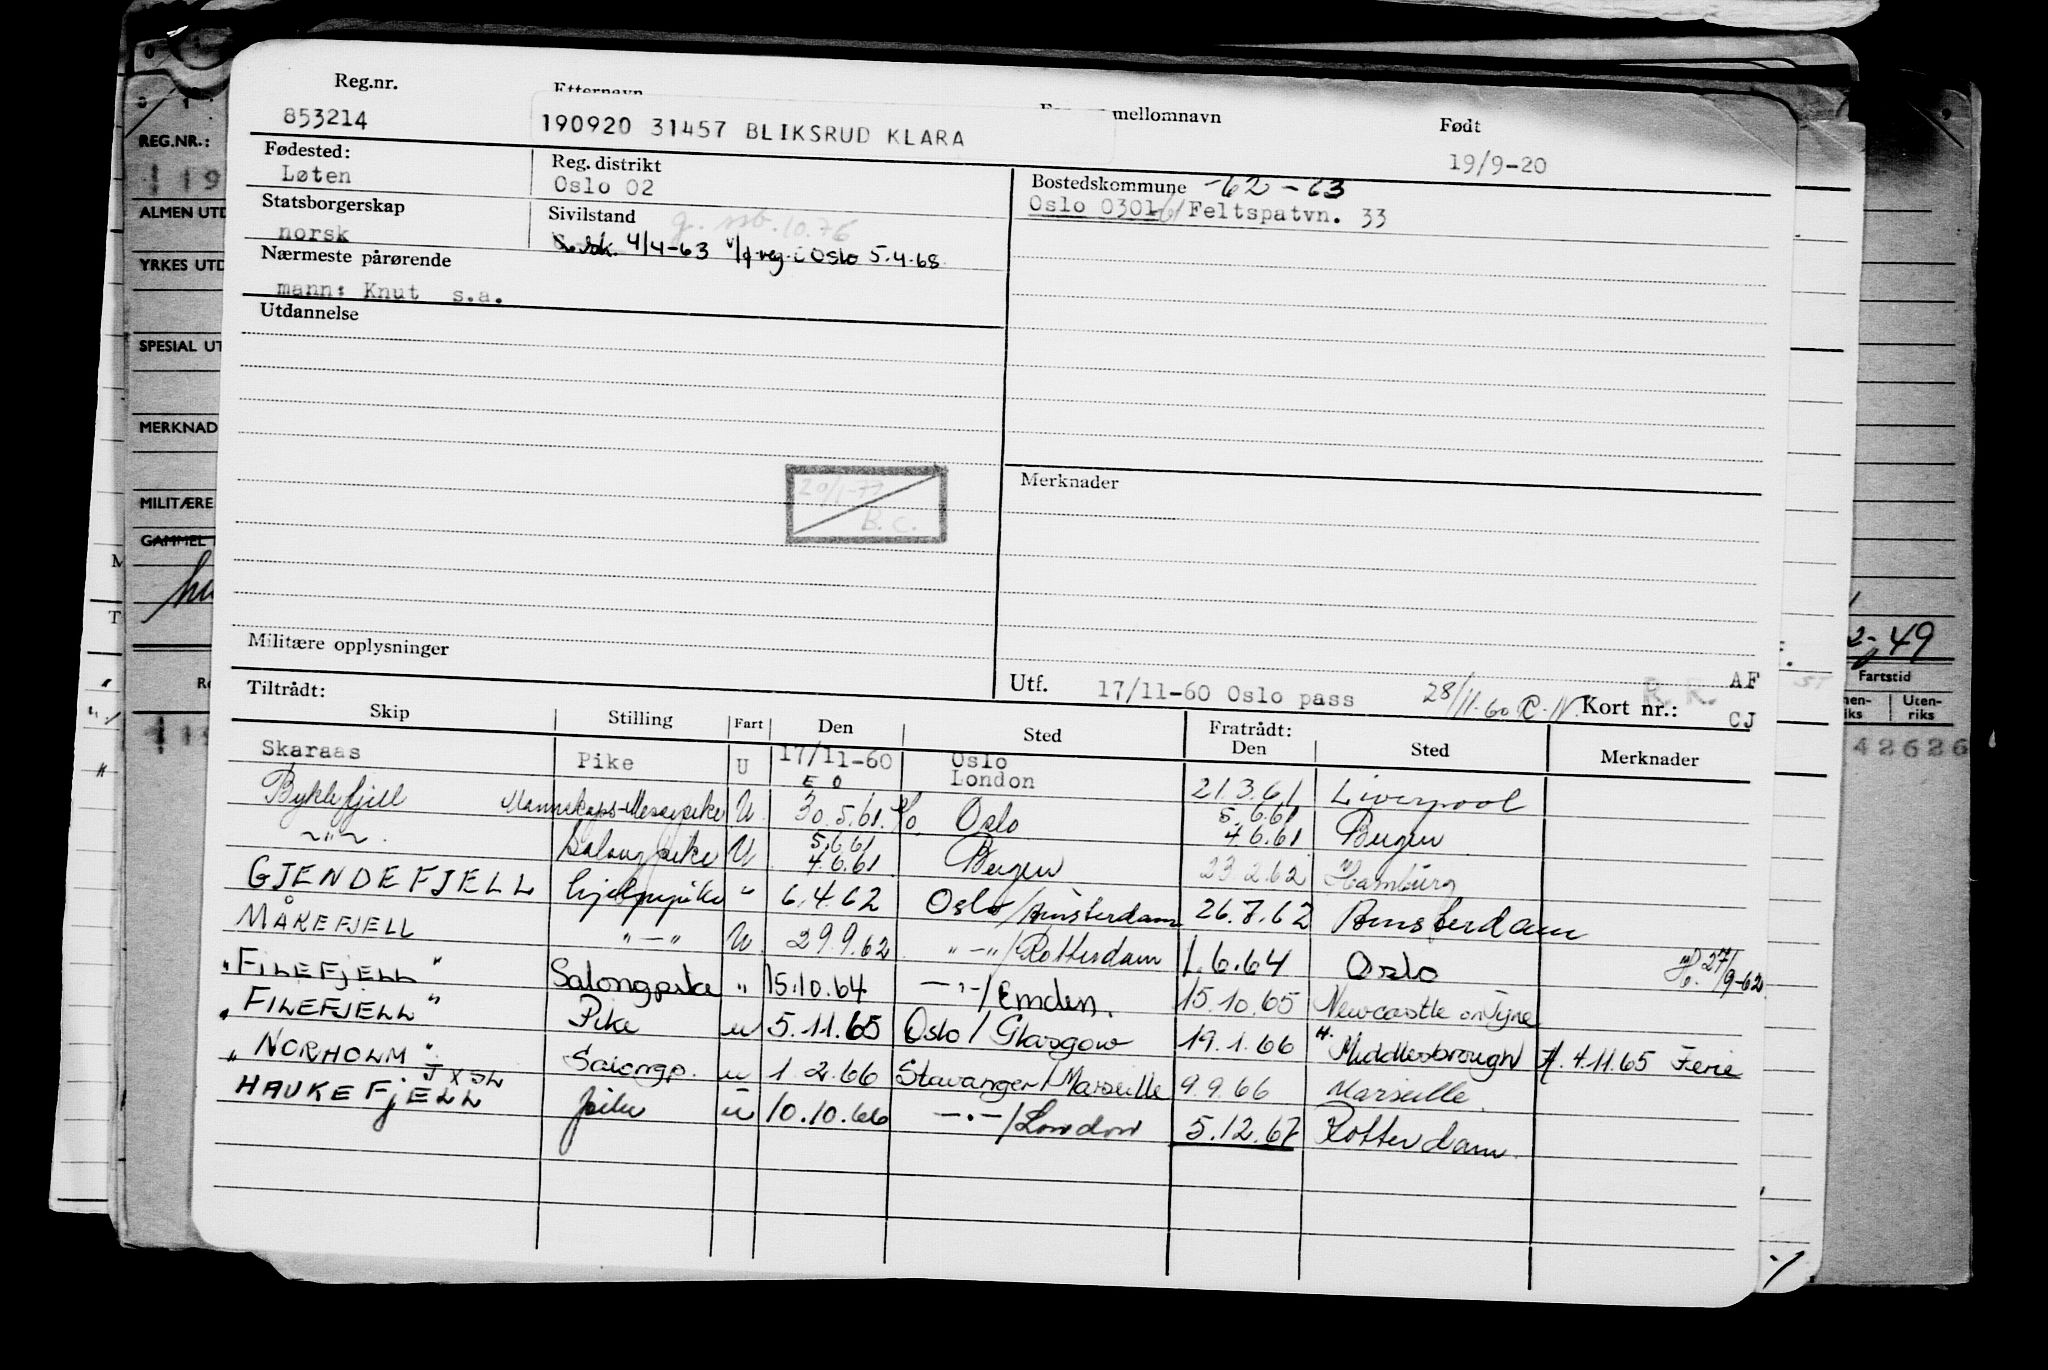 Reg.nr.
Etternavn
mellomnavn
Født
853214
190920 31457 BLIKSRUD KLARA
19/9-20
Fødested:
Løten
Reg. distrikt
Oslo 02
Bostedskommune -62-63
Oslo 0301-61 Feltspatvn. 33
Statsborgerskap
norsk
Sivilstand
g. ssb. 10.76
4/4-63 v/f.reg. i Oslo 5.4.68
Nærmeste pårørende
mann: Knut s.a.
Utdannelse
20/1-77
B.C.
Merknader
Militære opplysninger
Utf. 17/11-60 Oslo pass 28/11-60 Kort nr.: R.K. AF
CJ
Tiltrådt:
Skip Stilling Fart Den Sted Fratrådt: Den Sted Merknader
Skaraas Pike U 17/11-60 Oslo London 21.3.61 Liverpool
Byklefjell Mannskaps-Messepike U 30.5.61. Oslo 5.6.61 4.6.61 Bergen
~"~ Salongpike U 5.6.61 4.6.61 Bergen 23.2.62 Hamburg
GJENDEFJELL hjelpepike " 6.4.62 Oslo/Amsterdam 26.7.62 Amsterdam
MÅKEFJELL "-" U 29.9.62 "-"/Rotterdam 1.6.64 Oslo 27/9-62
"FILEFJELL" Salongpike " 15.10.64 -"-/Emden. 15.10.65 Newcastle on Tyne
"FILEFJELL" Pike u 5.11.65 Oslo/Glasgow 19.1.66 Middlesbrough 4.11.65 Ferie
"NORHOLM" Salongp. u 1.2.66 Stavanger/Marseille 9.9.66 Marseille.
HAUKEFJELL pike u 10.10.66 -"-/London 5.12.67 Rotterdam.
REG.NR.:
ALMEN UTD
YRKES UTD
SPESIAL UT
MERKNAD
MILITÆRE
GAMMEL
2-49
Fartstid
Uten-
riks
42626